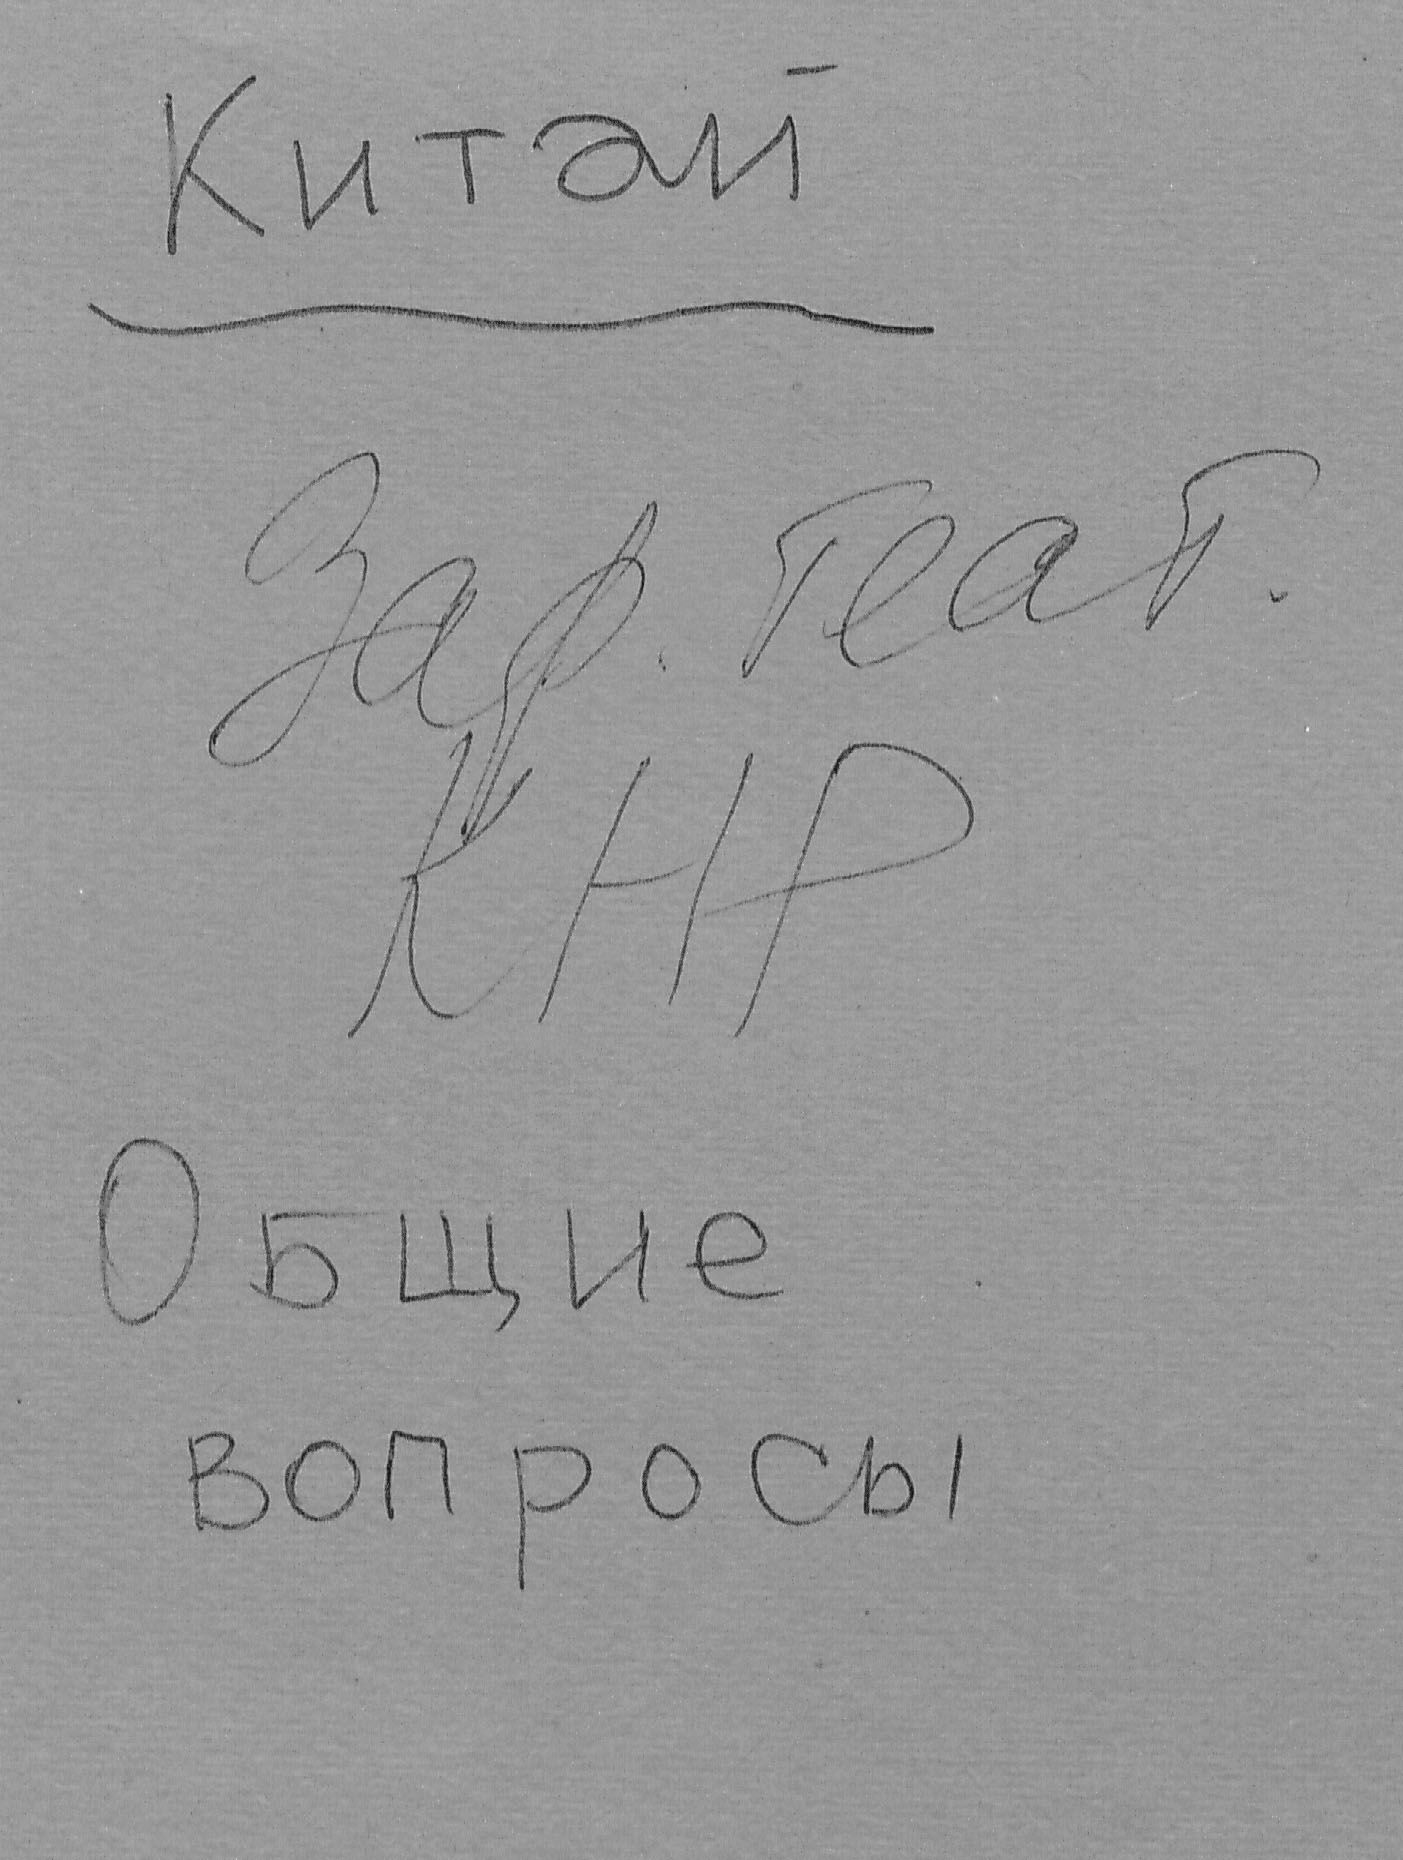 Китай
Зар. теат.
КНР
Общие
вопросы